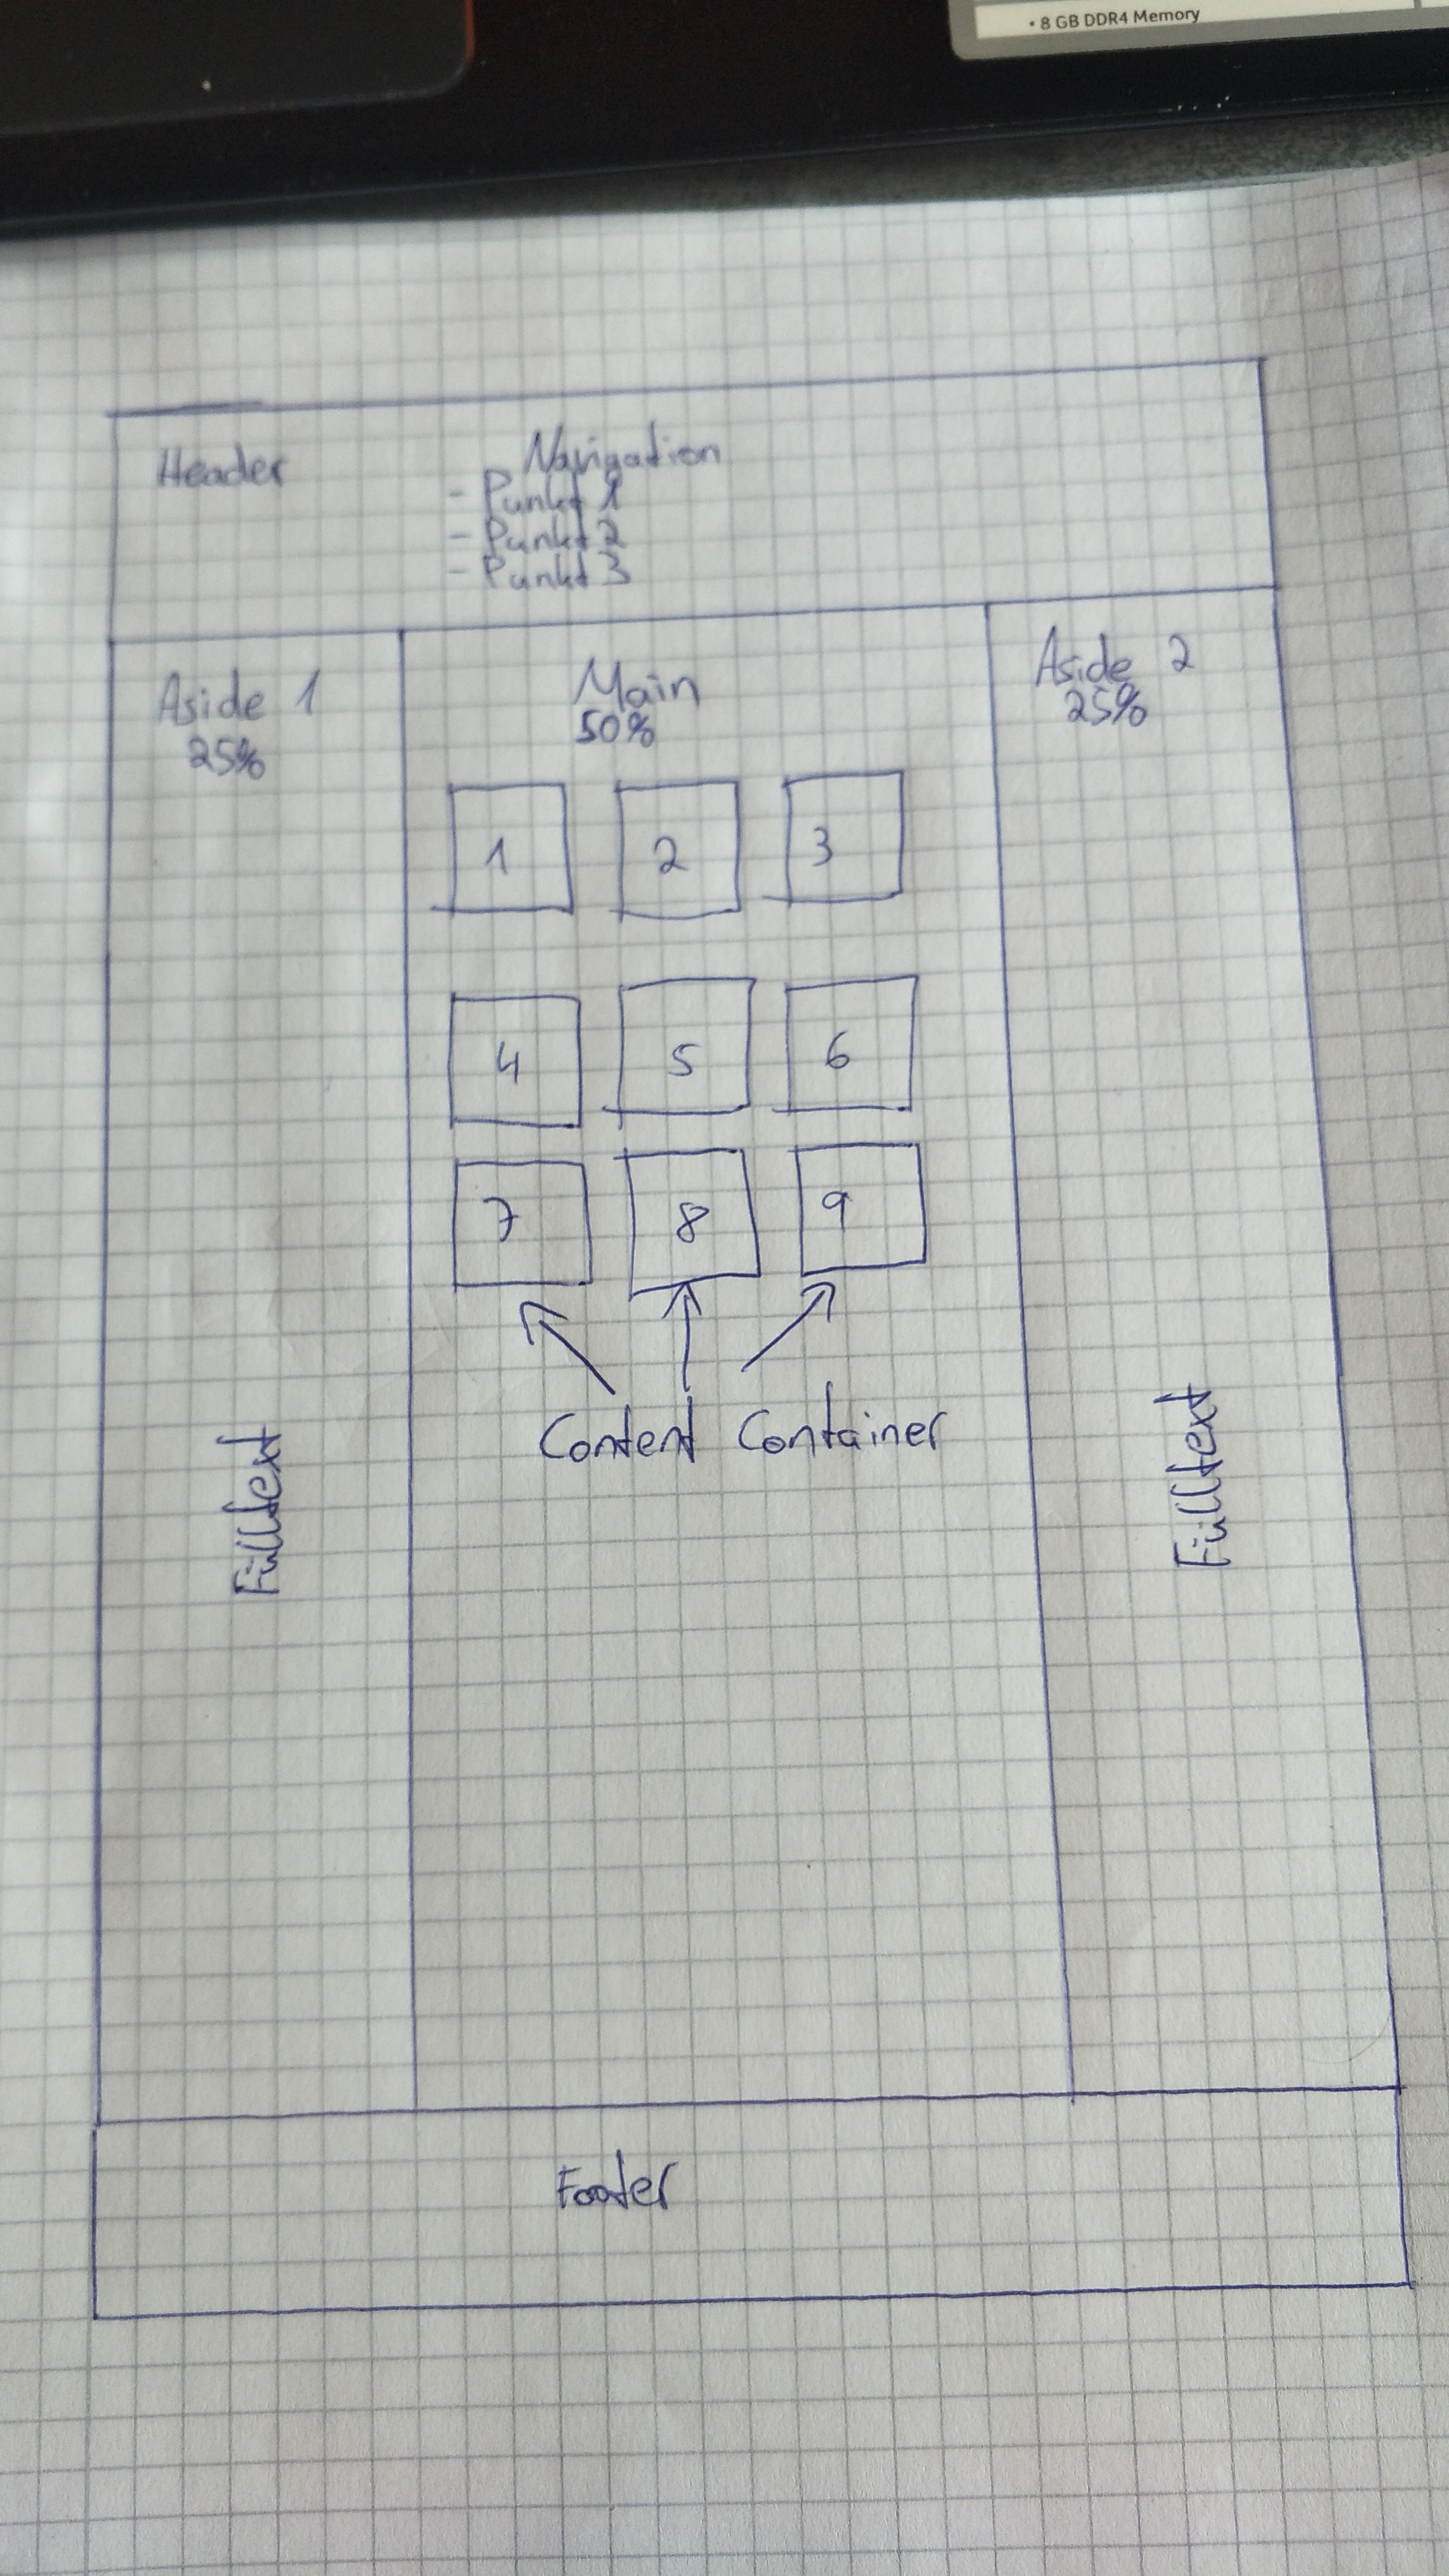 • 8 GB DDR4 Memory
Header
Navigation
- Punkt 1
- Punkt 2
- Punkt 3
Aside 1
25%
Main
50%
Aside 2
25%
1 2 3
4 5 6
7 8 9
Content Container
Fülltext
Fülltext
Footer